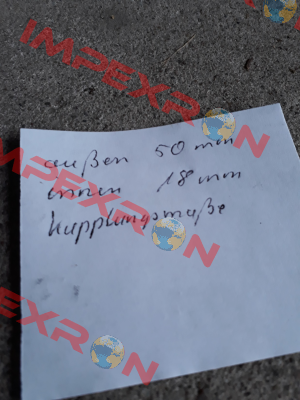 IMPEXRON
außen 50 mm
innen 18 mm
Kupplungsmaße
IMPEXRON
IMPEXRON